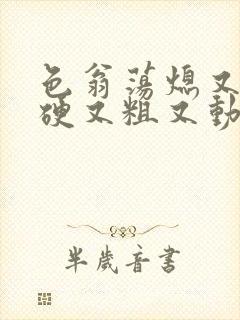 色翁荡熄又
硬又粗又動
半歲音書